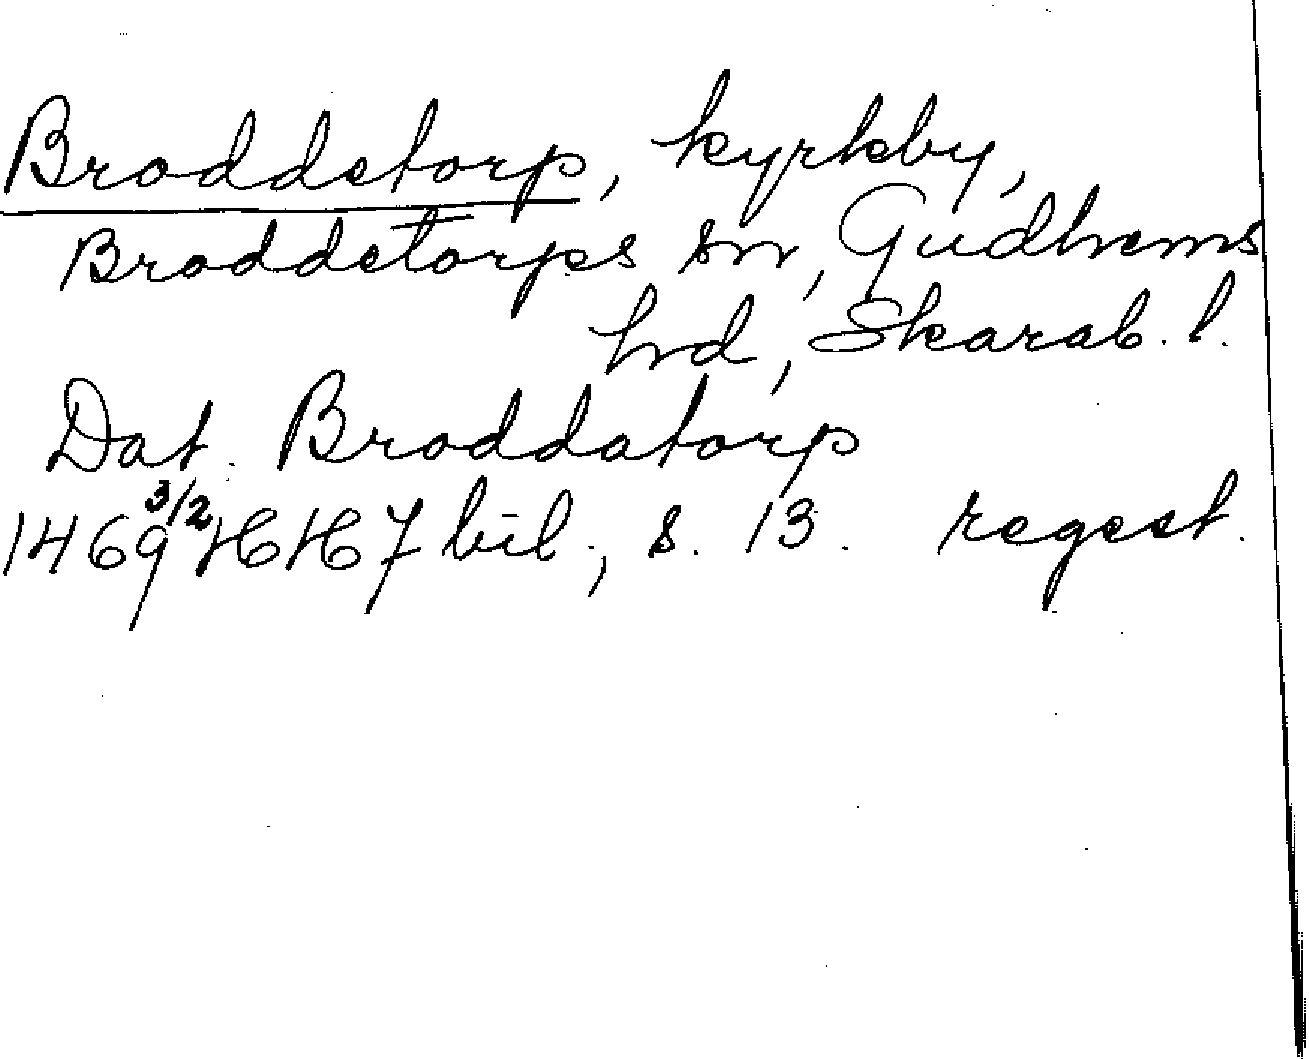 Broddetorp, kyrkby,
Broddetorps sn, Gudhems
hrd, Skarab. l.
Dat. Broddatorp
1469 3/2 HH 7 bil., s. 13. regest.